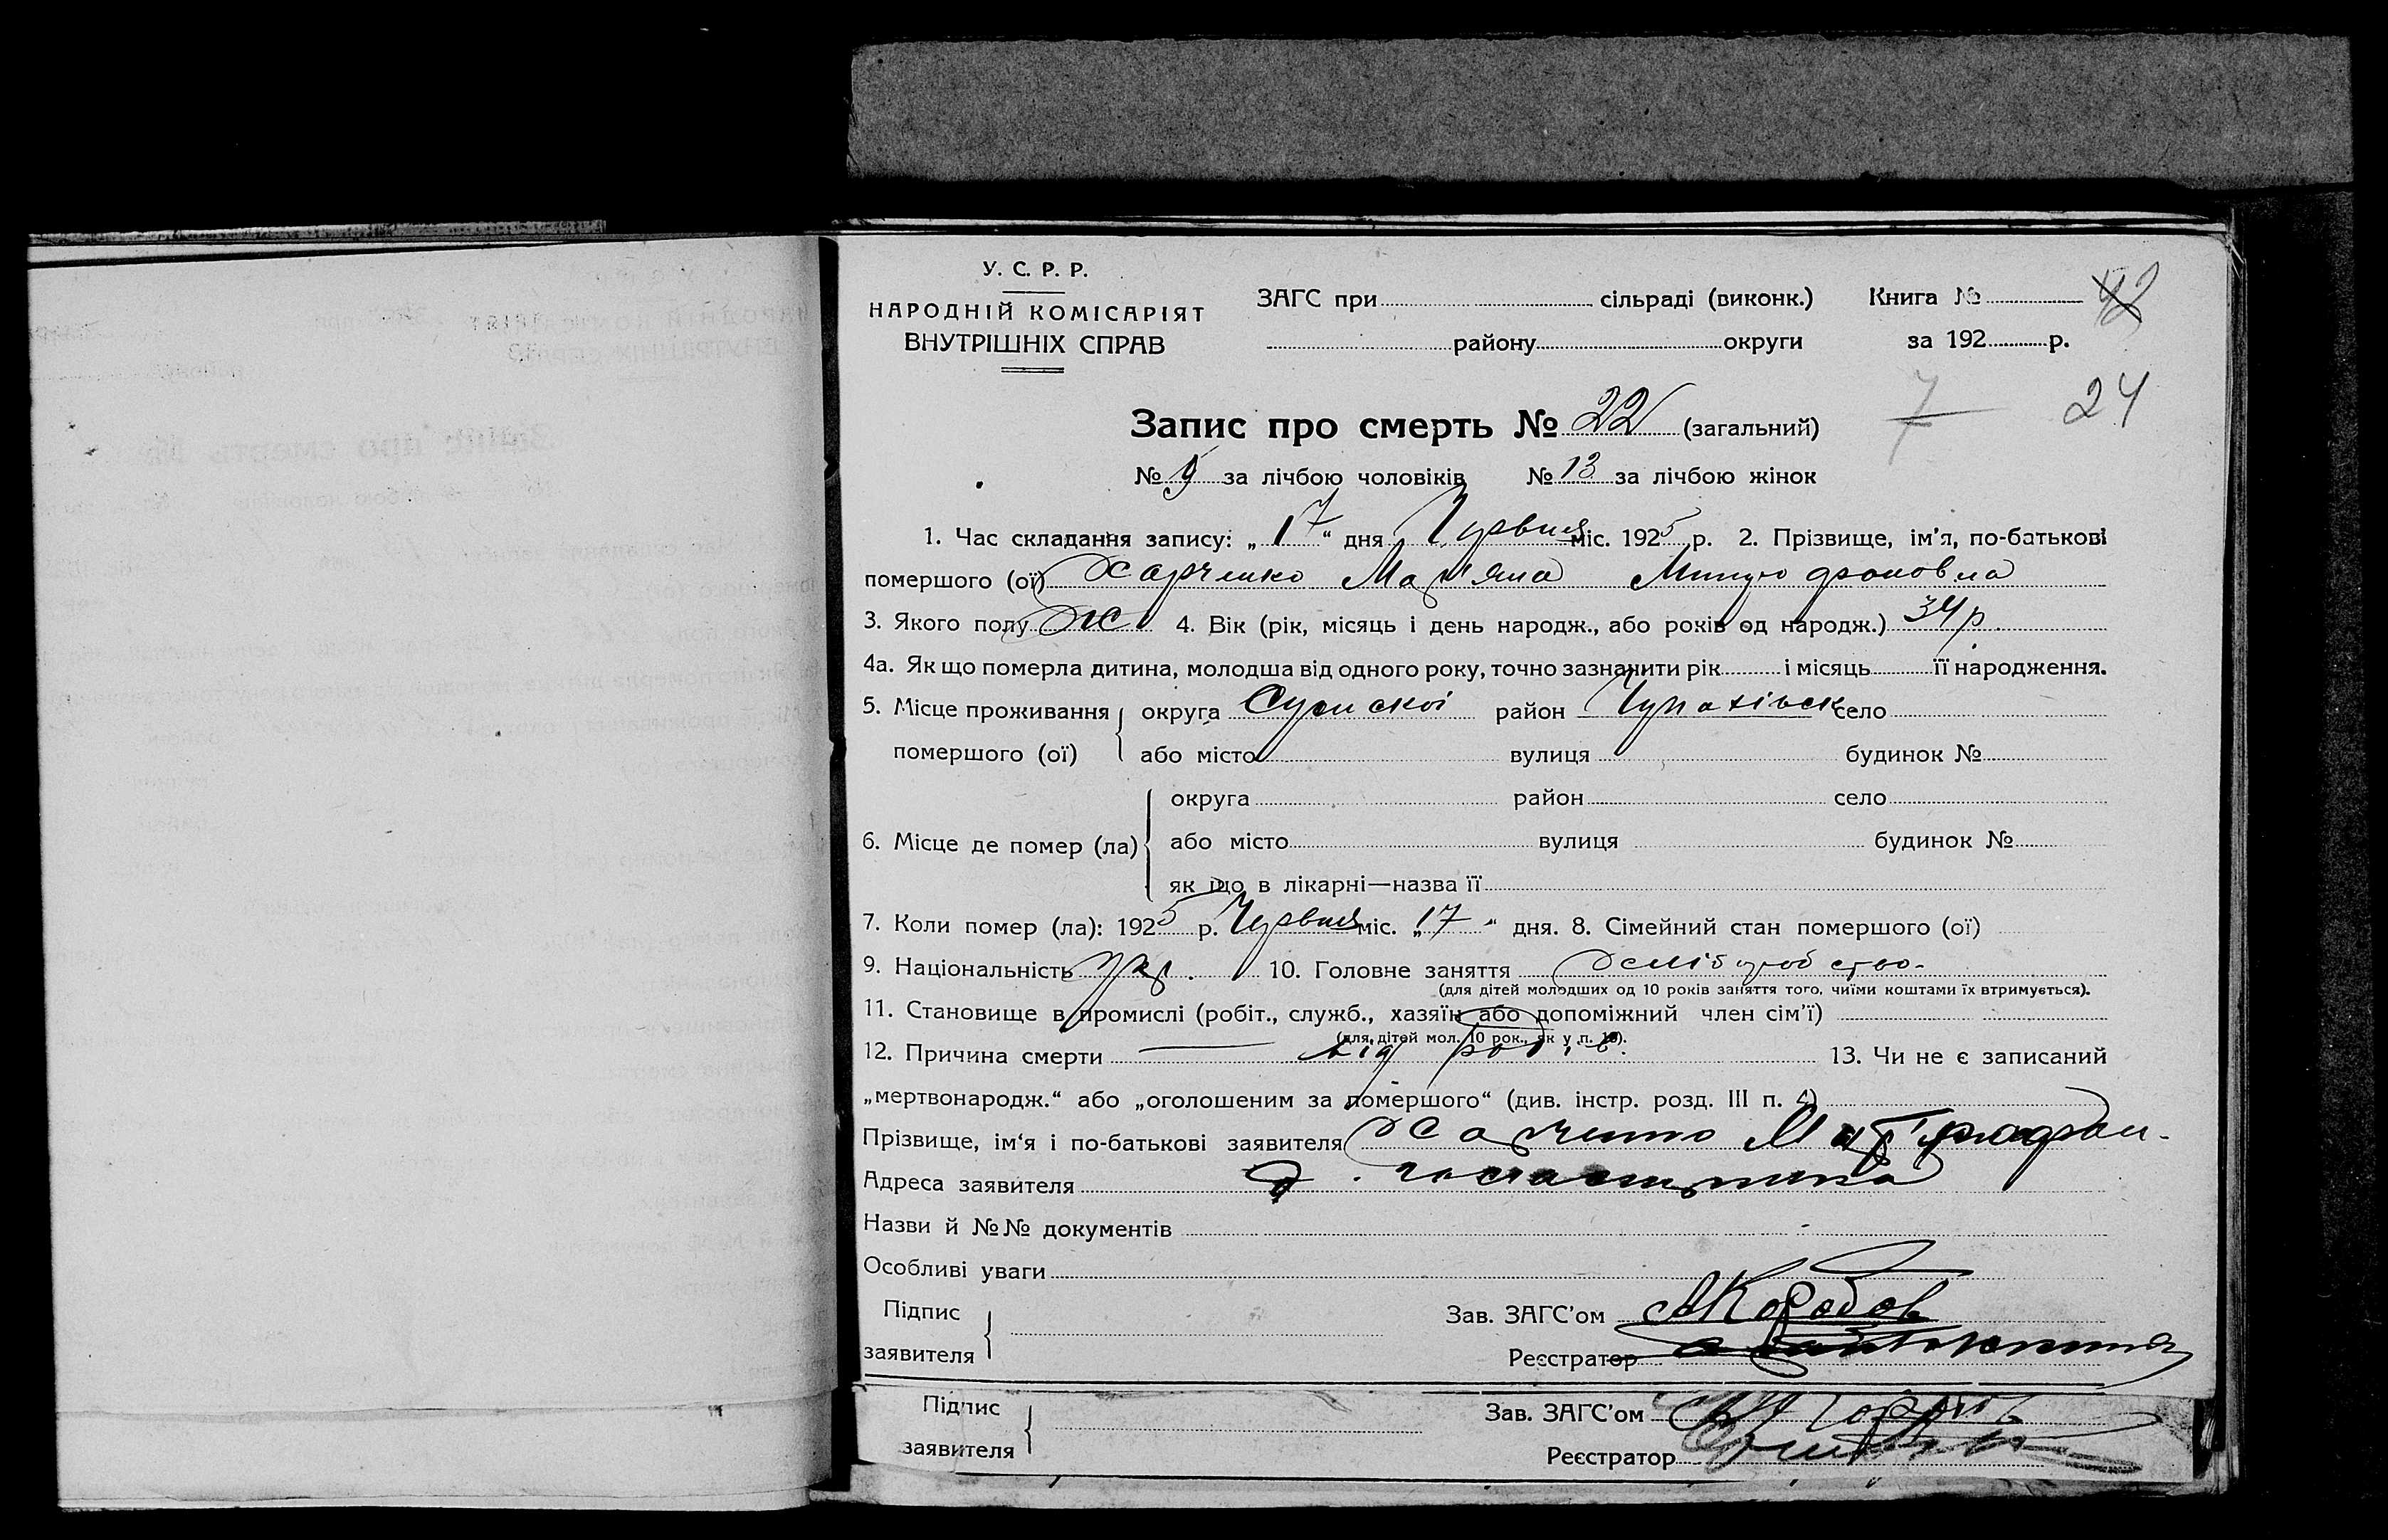 У. С. Р. Р.
НАРОДНІЙ КОМІСАРІЯТ
ВНУТРІШНІХ СПРАВ
ЗАГС при сільраді (виконк.) Книга №
району округи за 192 р.
42
24
7
Запис про смерть № 22 (загальний)
№ 9 за лічбою чоловіків № 13 за лічбою жінок
1. Час складання запису: „ 17 “ дня Червня міс. 1925 р. 2. Прізвище, ім’я, по-батькові
помершого (ої) Харченко
3. Якого полу Ж 4. Вік (рік, місяць і день народж., або років од народж.) 34 р.
4а. Як що померла дитина, молодша від одного року, точно зазначити рік і місяць її народження.
5. Місце проживання округа Сумскої район Чупахівск село
помершого (ої) або місто вулиця будинок №
округа район село
6. Місце де помер (ла) або місто вулиця будинок №
як що в лікарні—назва її
7. Коли помер (ла): 1925 р. Червня міс. „ 17 “ дня. 8. Сімейний стан помершого (ої)
9. Національність укр. 10. Головне заняття хліборобство.
(для дітей молодших од 10 років заняття того, чиїми коштами їх втримується).
11. Становище в промислі (робіт., служб., хазяїн або допоміжний член сім’ї)
(для дітей мол. 10 рок., як у п. 10).
12. Причина смерти — від родів. 13. Чи не є записаний
„мертвонародж.“ або „оголошеним за помершого“ (див. інстр. розд. III п. 4)
Прізвище, ім‘я і по-батькові заявителя Харченко
Адреса заявителя
Назви й №№ документів
Особливі уваги
Підпис
заявителя
Зав. ЗАГС’ом
Реєстратор
Підпис
заявителя
Зав. ЗАГС’ом
Реєстратор